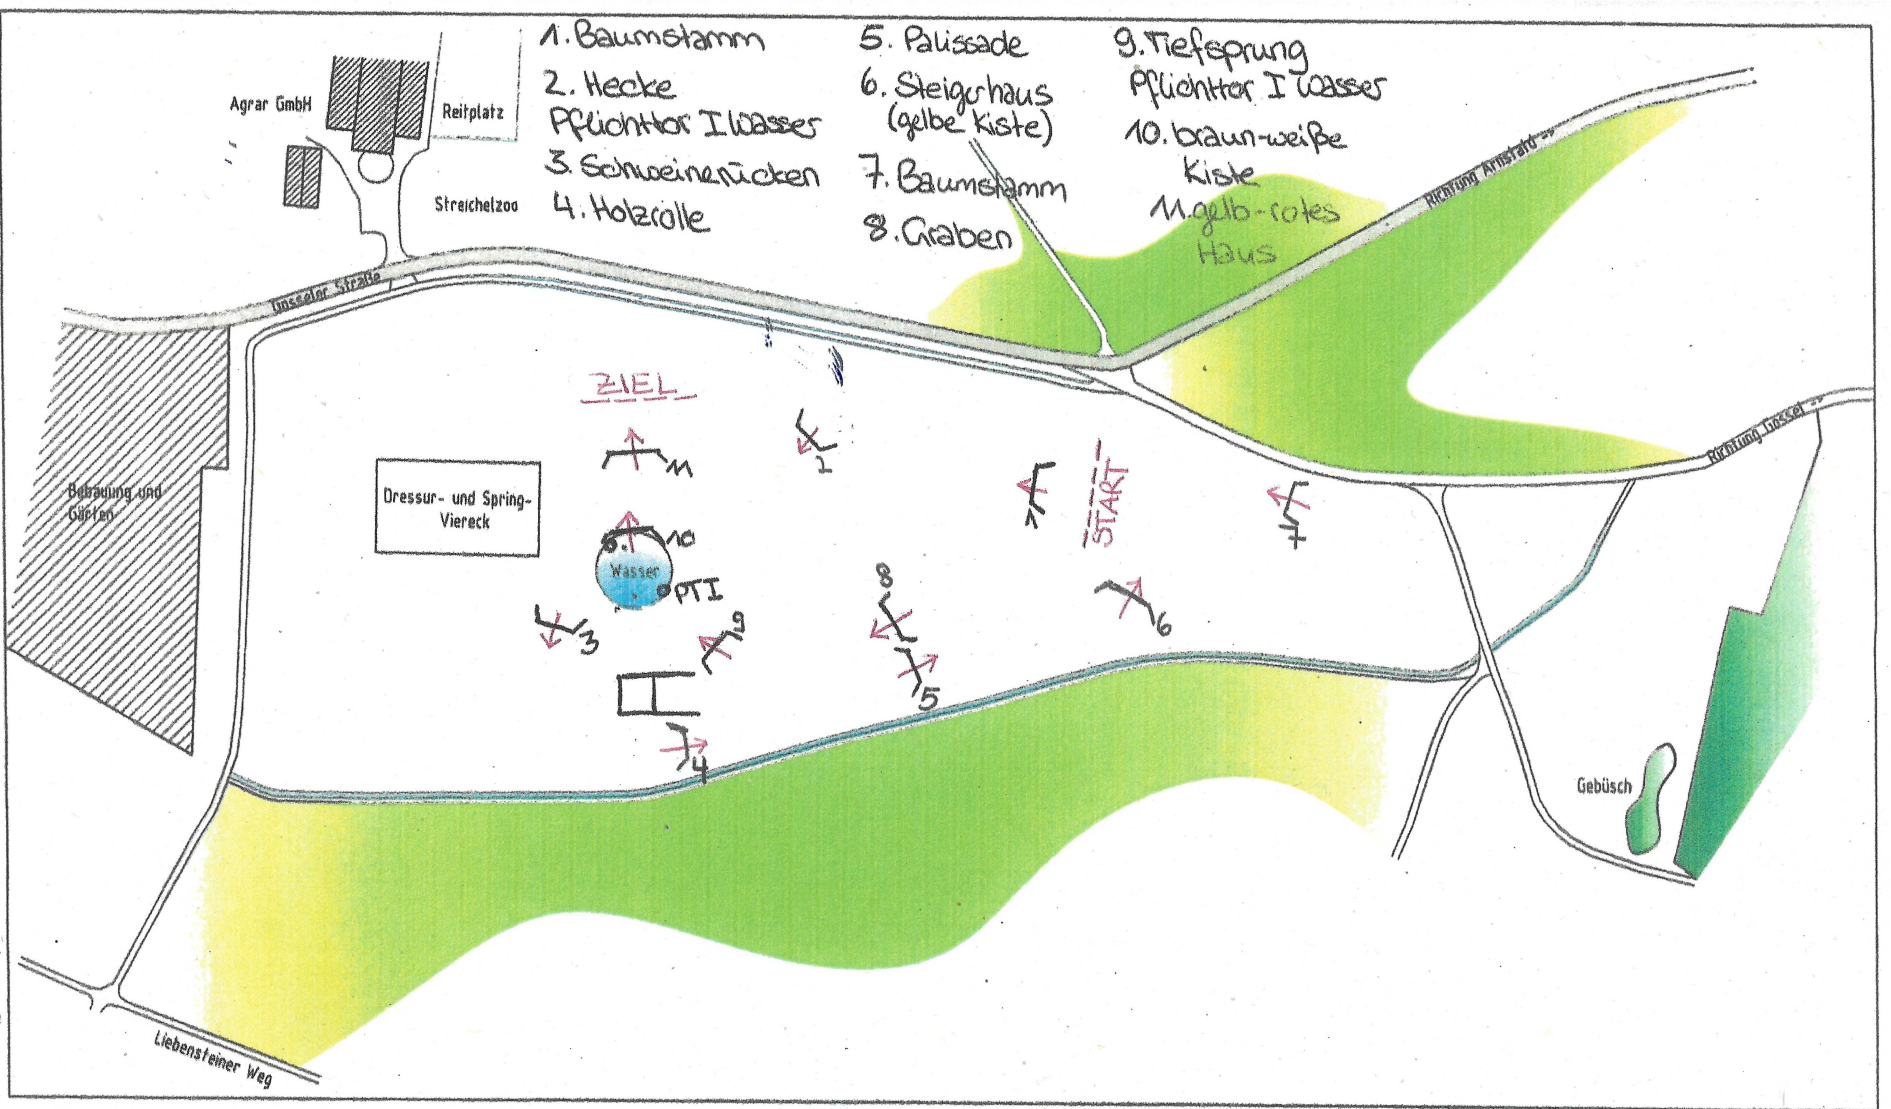 1. Baumstamm
2. Hecke
Pflichttor I Wasser
3. Schweinerücken
4. Holzrolle
5. Palissade
6. Steigerhaus
(gelbe Kiste)
7. Baumstamm
8. Graben
9. Tiefsprung
Pflichttor I Wasser
10. braun-weiße
Kiste
11. gelb-rotes
Haus
Agrar GmbH
Reitplatz
Streichelzoo
Gosseler Straße
Richtung Arnstadt ->
Richtung Gossel ->
Bebauung und
Gärten
ZIEL
11
2
Dressur- und Spring-
Viereck
1
START
7
10
Wasser
PTI
3
9
8
6
5
4
Gebüsch
Liebensteiner Weg